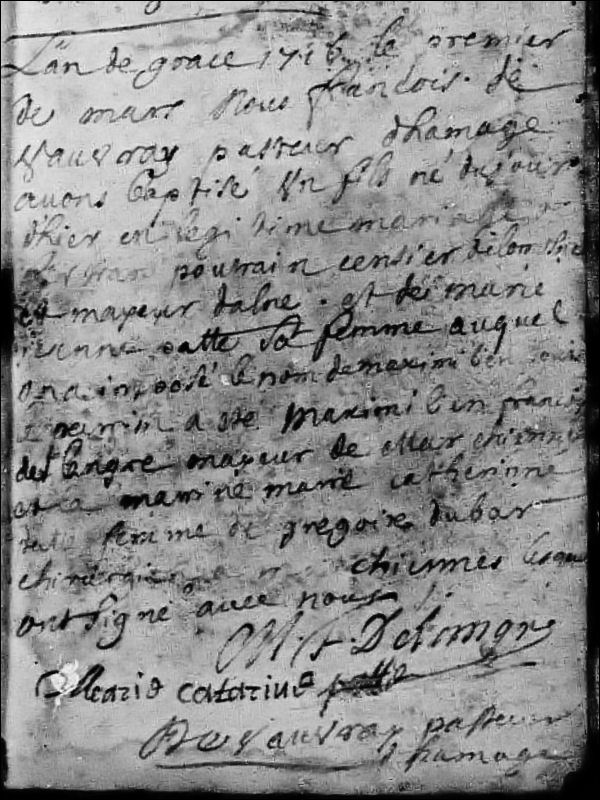 L'an de grace 1716 le premier
de mars Nous francois de
Vauvray pasteur dhamage
avons baptisé Un fils né du jour
d'hier en legitime mariage de
poutrain censier
et mayeur dalne et de marie
patte sa femme auquel
on a imposé le nom de maximilien
le perrin a eté Maximilien francois
delangre mayeur de Marchiennes
et la marrine marie catherinne
patte femme de gregoire dubar
chirurgien a marchiennes lesquels
ont signé avec nous
M f Delangre
Marie catarine patte
De Vauvray pasteur
dhamage